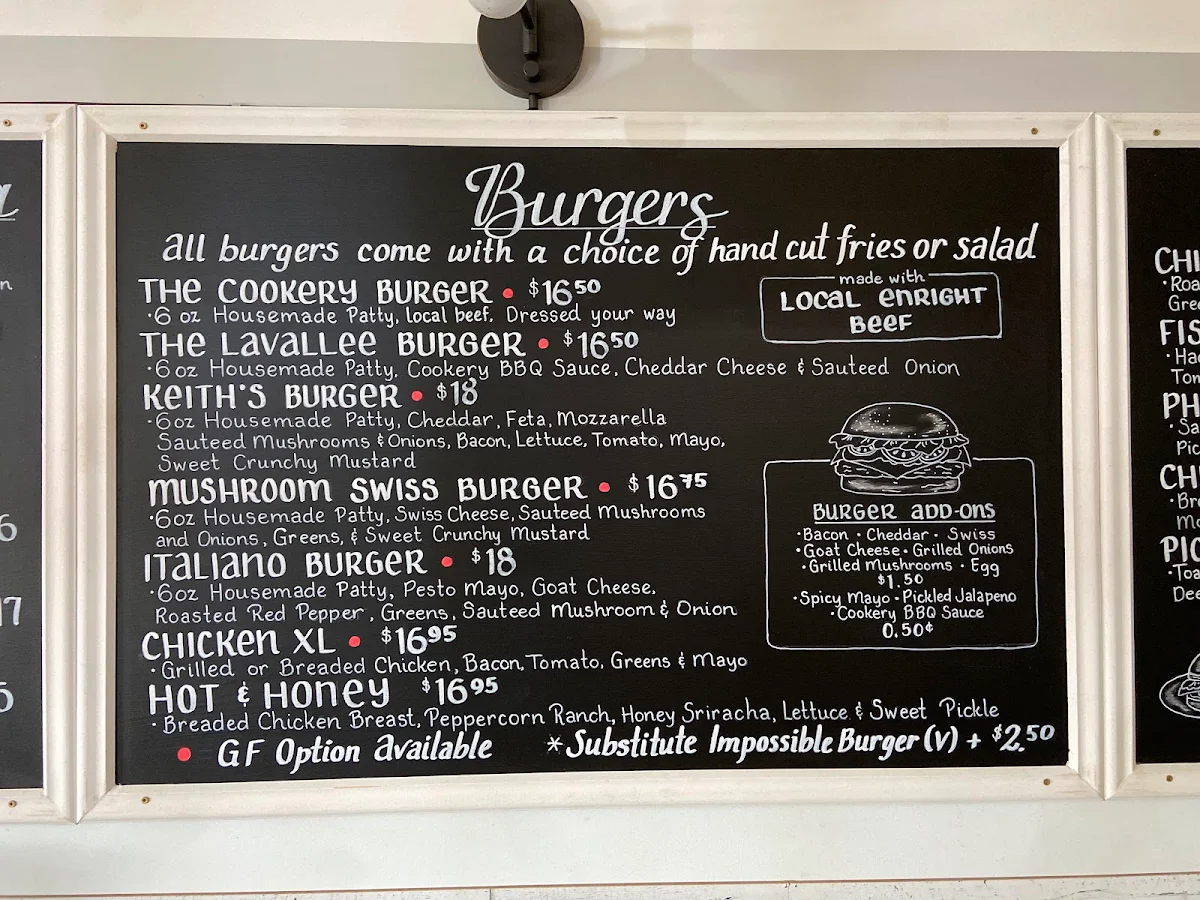 Burgers
all burgers come with a choice of hand cut fries or salad
THE COOKERY BURGER • $16.50
·6 oz Housemade Patty, local beef. Dressed your way
made with
LOCAL ENRIGHT
BEEF
THE LAVALLEE BURGER • $16.50
·6oz Housemade Patty, Cookery BBQ Sauce, Cheddar Cheese & Sauteed Onion
KEITH'S BURGER • $18
·6oz Housemade Patty, Cheddar, Feta, Mozzarella
Sauteed Mushrooms & Onions, Bacon, Lettuce, Tomato, Mayo,
Sweet Crunchy Mustard
MUSHROOM SWISS BURGER • $16.75
·6oz Housemade Patty, Swiss Cheese, Sauteed Mushrooms
and Onions, Greens, & Sweet Crunchy Mustard
ITALIANO BURGER • $18
·6oz Housemade Patty, Pesto Mayo, Goat Cheese,
Roasted Red Pepper, Greens, Sauteed Mushroom & Onion
CHICKEN XL • $16.95
·Grilled or Breaded Chicken, Bacon, Tomato, Greens & Mayo
HOT & HONEY $16.95
·Breaded Chicken Breast, Peppercorn Ranch, Honey Sriracha, Lettuce & Sweet Pickle
• GF Option Available
*Substitute Impossible Burger (v) + $2.50
BURGER ADD-ONS
·Bacon · Cheddar · Swiss
·Goat Cheese · Grilled Onions
·Grilled Mushrooms · Egg
$1.50
·Spicy Mayo ·Pickled Jalapeno
·Cookery BBQ Sauce
0.50¢